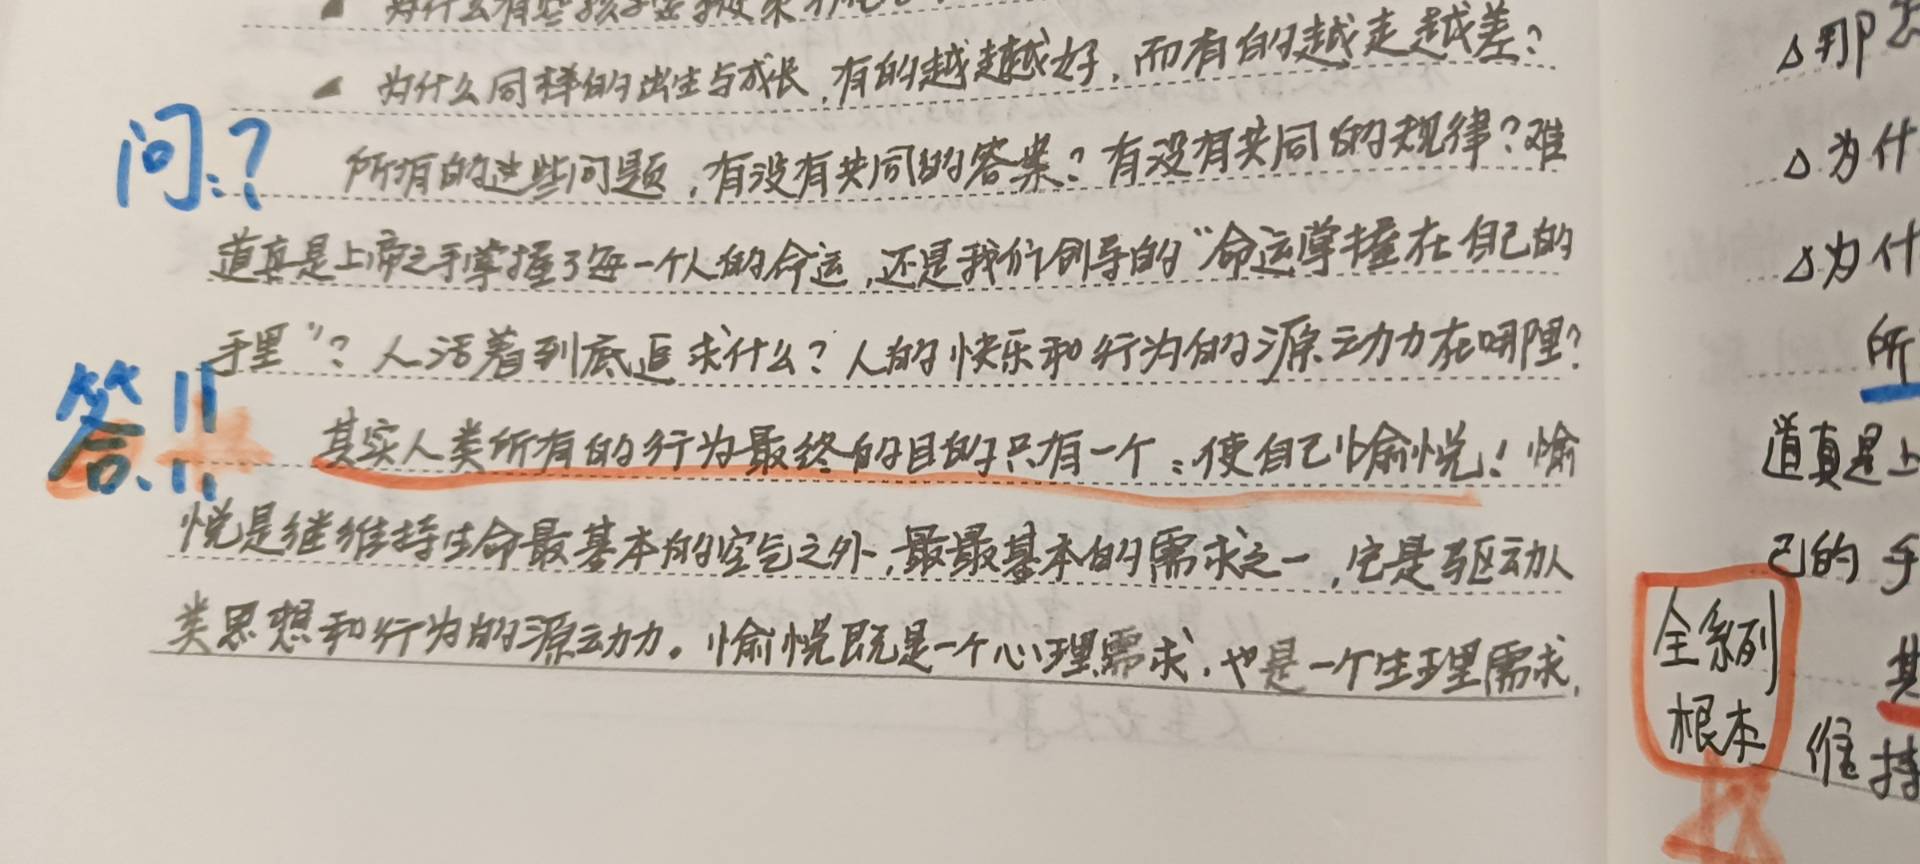 为什么有些孩子
为什么同样的出生与成长，有的越走越好，而有的越走越差？
问：？
所有的这些问题，有没有共同的答案？有没有共同的规律？难
道真是上帝之手掌握了每一个人的命运，还是我们倡导的“命运掌握在自己的
手里”？人活着到底追求什么？人的快乐和行为的源动力在哪里？
答：！！
其实人类所有的行为最终的目的只有一个：使自己愉悦！愉
悦是继维持生命最基本的空气之外，最最基本的需求之一，它是驱动人
类思想和行为的源动力。愉悦既是一个心理需求，也是一个生理需求，
△那
△为什
△为什
所
道真是上
己的手
全系列
根本
其
维持